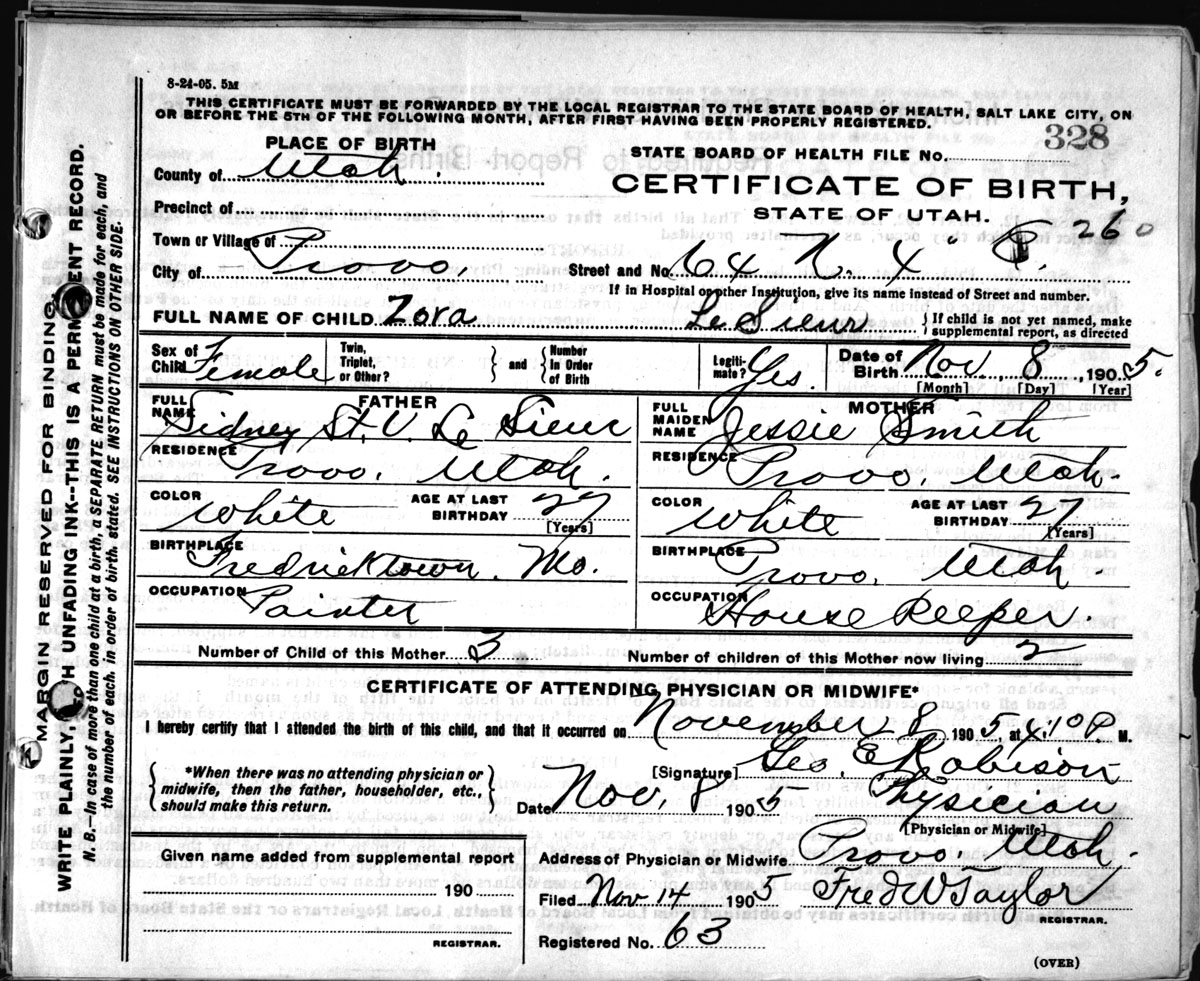 8-24-05. 5M
THIS CERTIFICATE MUST BE FORWARDED BY THE LOCAL REGISTRAR TO THE STATE BOARD OF HEALTH, SALT LAKE CITY, ON
OR BEFORE THE 5TH OF THE FOLLOWING MONTH, AFTER FIRST HAVING BEEN PROPERLY REGISTERED.
328
PLACE OF BIRTH
STATE BOARD OF HEALTH FILE NO.
County of Utah.
CERTIFICATE OF BIRTH,
Precinct of
STATE OF UTAH.
260
Town or Village of
City of Provo, Street and No. 64 N. 4
If in Hospital or other Institution, give its name instead of Street and number.
FULL NAME OF CHILD Zora Le Sieur { If child is not yet named, make supplemental report, as directed
Sex of Child Female Twin, Triplet, or Other? } and { Number In Order of Birth Legitimate? Yes. Date of Birth Nov 8, 1905.
[Month] [Day] [Year]
FATHER MOTHER
FULL NAME Sidney St. V. Le Sieur FULL MAIDEN NAME Jessie Smith
RESIDENCE Provo, Utah. RESIDENCE Provo, Utah.
COLOR White AGE AT LAST BIRTHDAY 27 [Years] COLOR White AGE AT LAST BIRTHDAY 27 [Years]
BIRTHPLACE Fredricktown. Mo. BIRTHPLACE Provo, Utah.
OCCUPATION Painter OCCUPATION House Keeper.
Number of Child of this Mother 3 Number of children of this Mother now living 2
CERTIFICATE OF ATTENDING PHYSICIAN OR MIDWIFE*
I hereby certify that I attended the birth of this child, and that it occurred on November 8 1905, at 4.10 P. M.
{ *When there was no attending physician or midwife, then the father, householder, etc., should make this return. }
[Signature] Geo. E Robison
Date Nov, 8 1905 Physician
[Physician or Midwife]
Given name added from supplemental report
Address of Physician or Midwife Provo, Utah.
190
Filed Nov 14 1905 Fred W Taylor
REGISTRAR.
REGISTRAR.
Registered No. 63
(OVER)
MARGIN RESERVED FOR BINDING.
WRITE PLAINLY, WITH UNFADING INK--THIS IS A PERMANENT RECORD.
N. B.--In case of more than one child at a birth, a SEPARATE RETURN must be made for each, and
the number of each, in order of birth, stated. SEE INSTRUCTIONS ON OTHER SIDE.